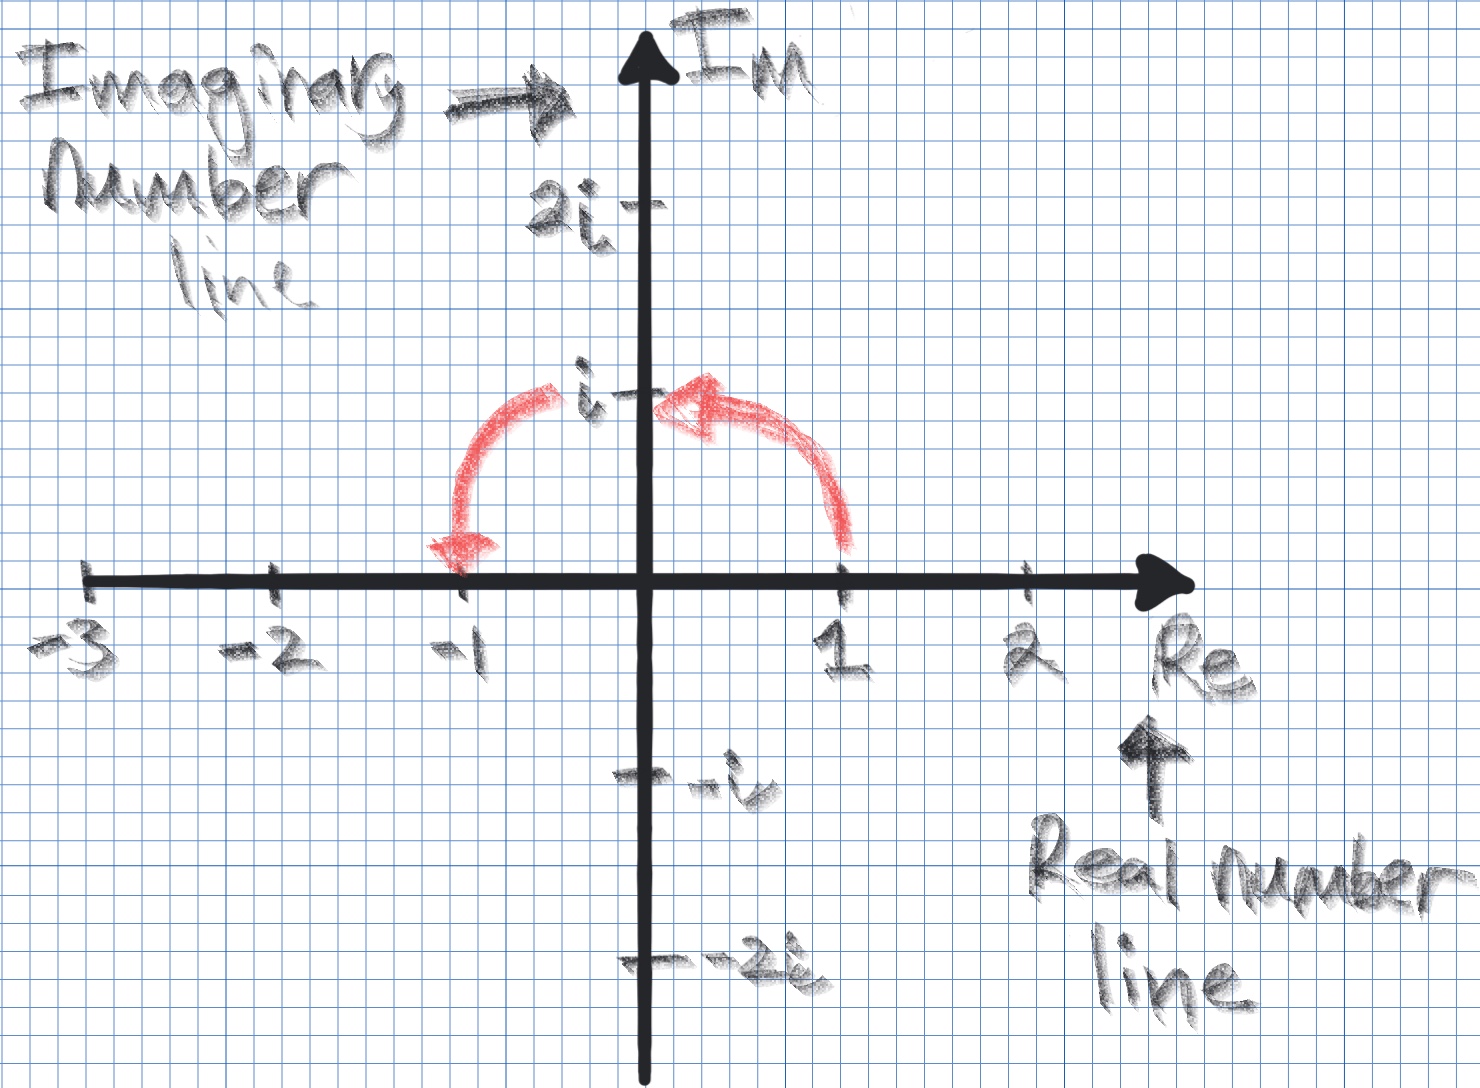 Im
Imaginary
number
line
2i
i
-3 -2 -1 1 2 Re
-i
Real number
line
-2i